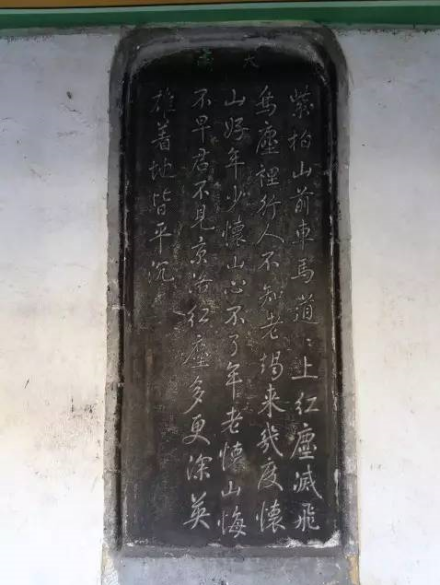 大
紫柏山前車馬道〻上紅塵滅飛
鳥塵裡行人不知老朅來幾度懷
山好年少懷山心不了年老懷山悔
不早君不見京洛紅塵多更深英
雄著地皆平沉